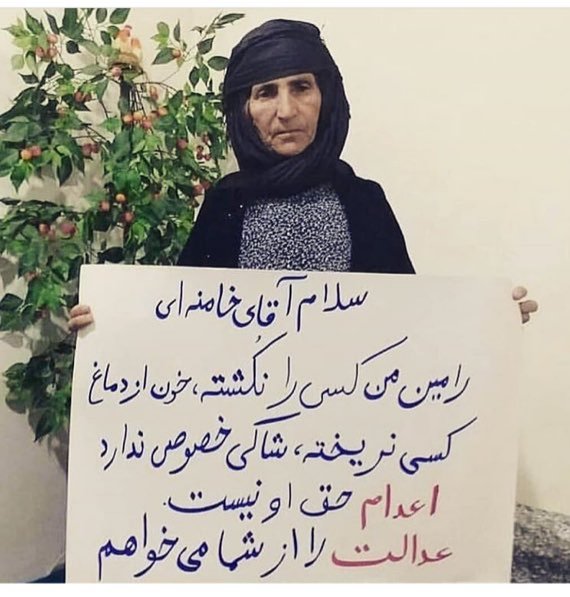 سلام آقای خامنه‌ای
رامین من کسی را نکُشته، خون از دماغ
کسی نریخته، شاکی خصوص ندارد
اعدام حق او نیست.
عدالت را از شما می‌خواهم